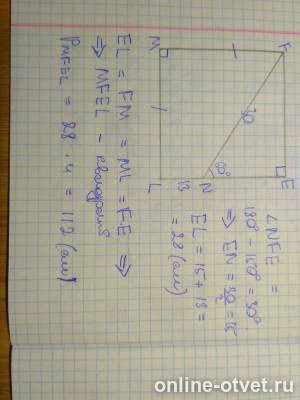 M
F
30
60°
E
N
13
L
∠NFE =
180° - 150° = 30°
⇒ EN = 30/2 = 15
EL = 15 + 13 =
= 28 (см)
EL = FM = ML = FE ⇒
⇒ MFEL - квадрат
P MFEL = 28 · 4 = 112 (см)
online-otvet.ru